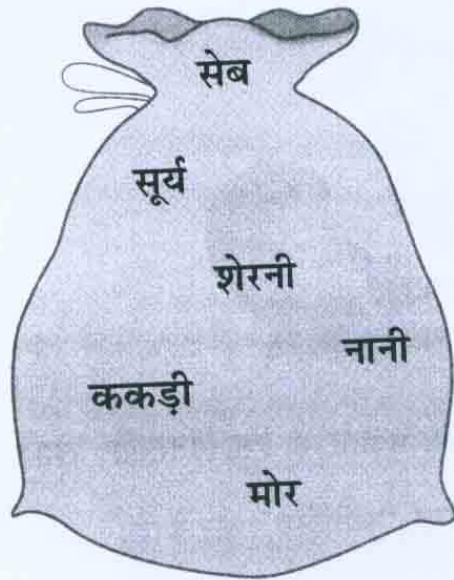 सेब
सूर्य
शेरनी
नानी
ककड़ी
मोर